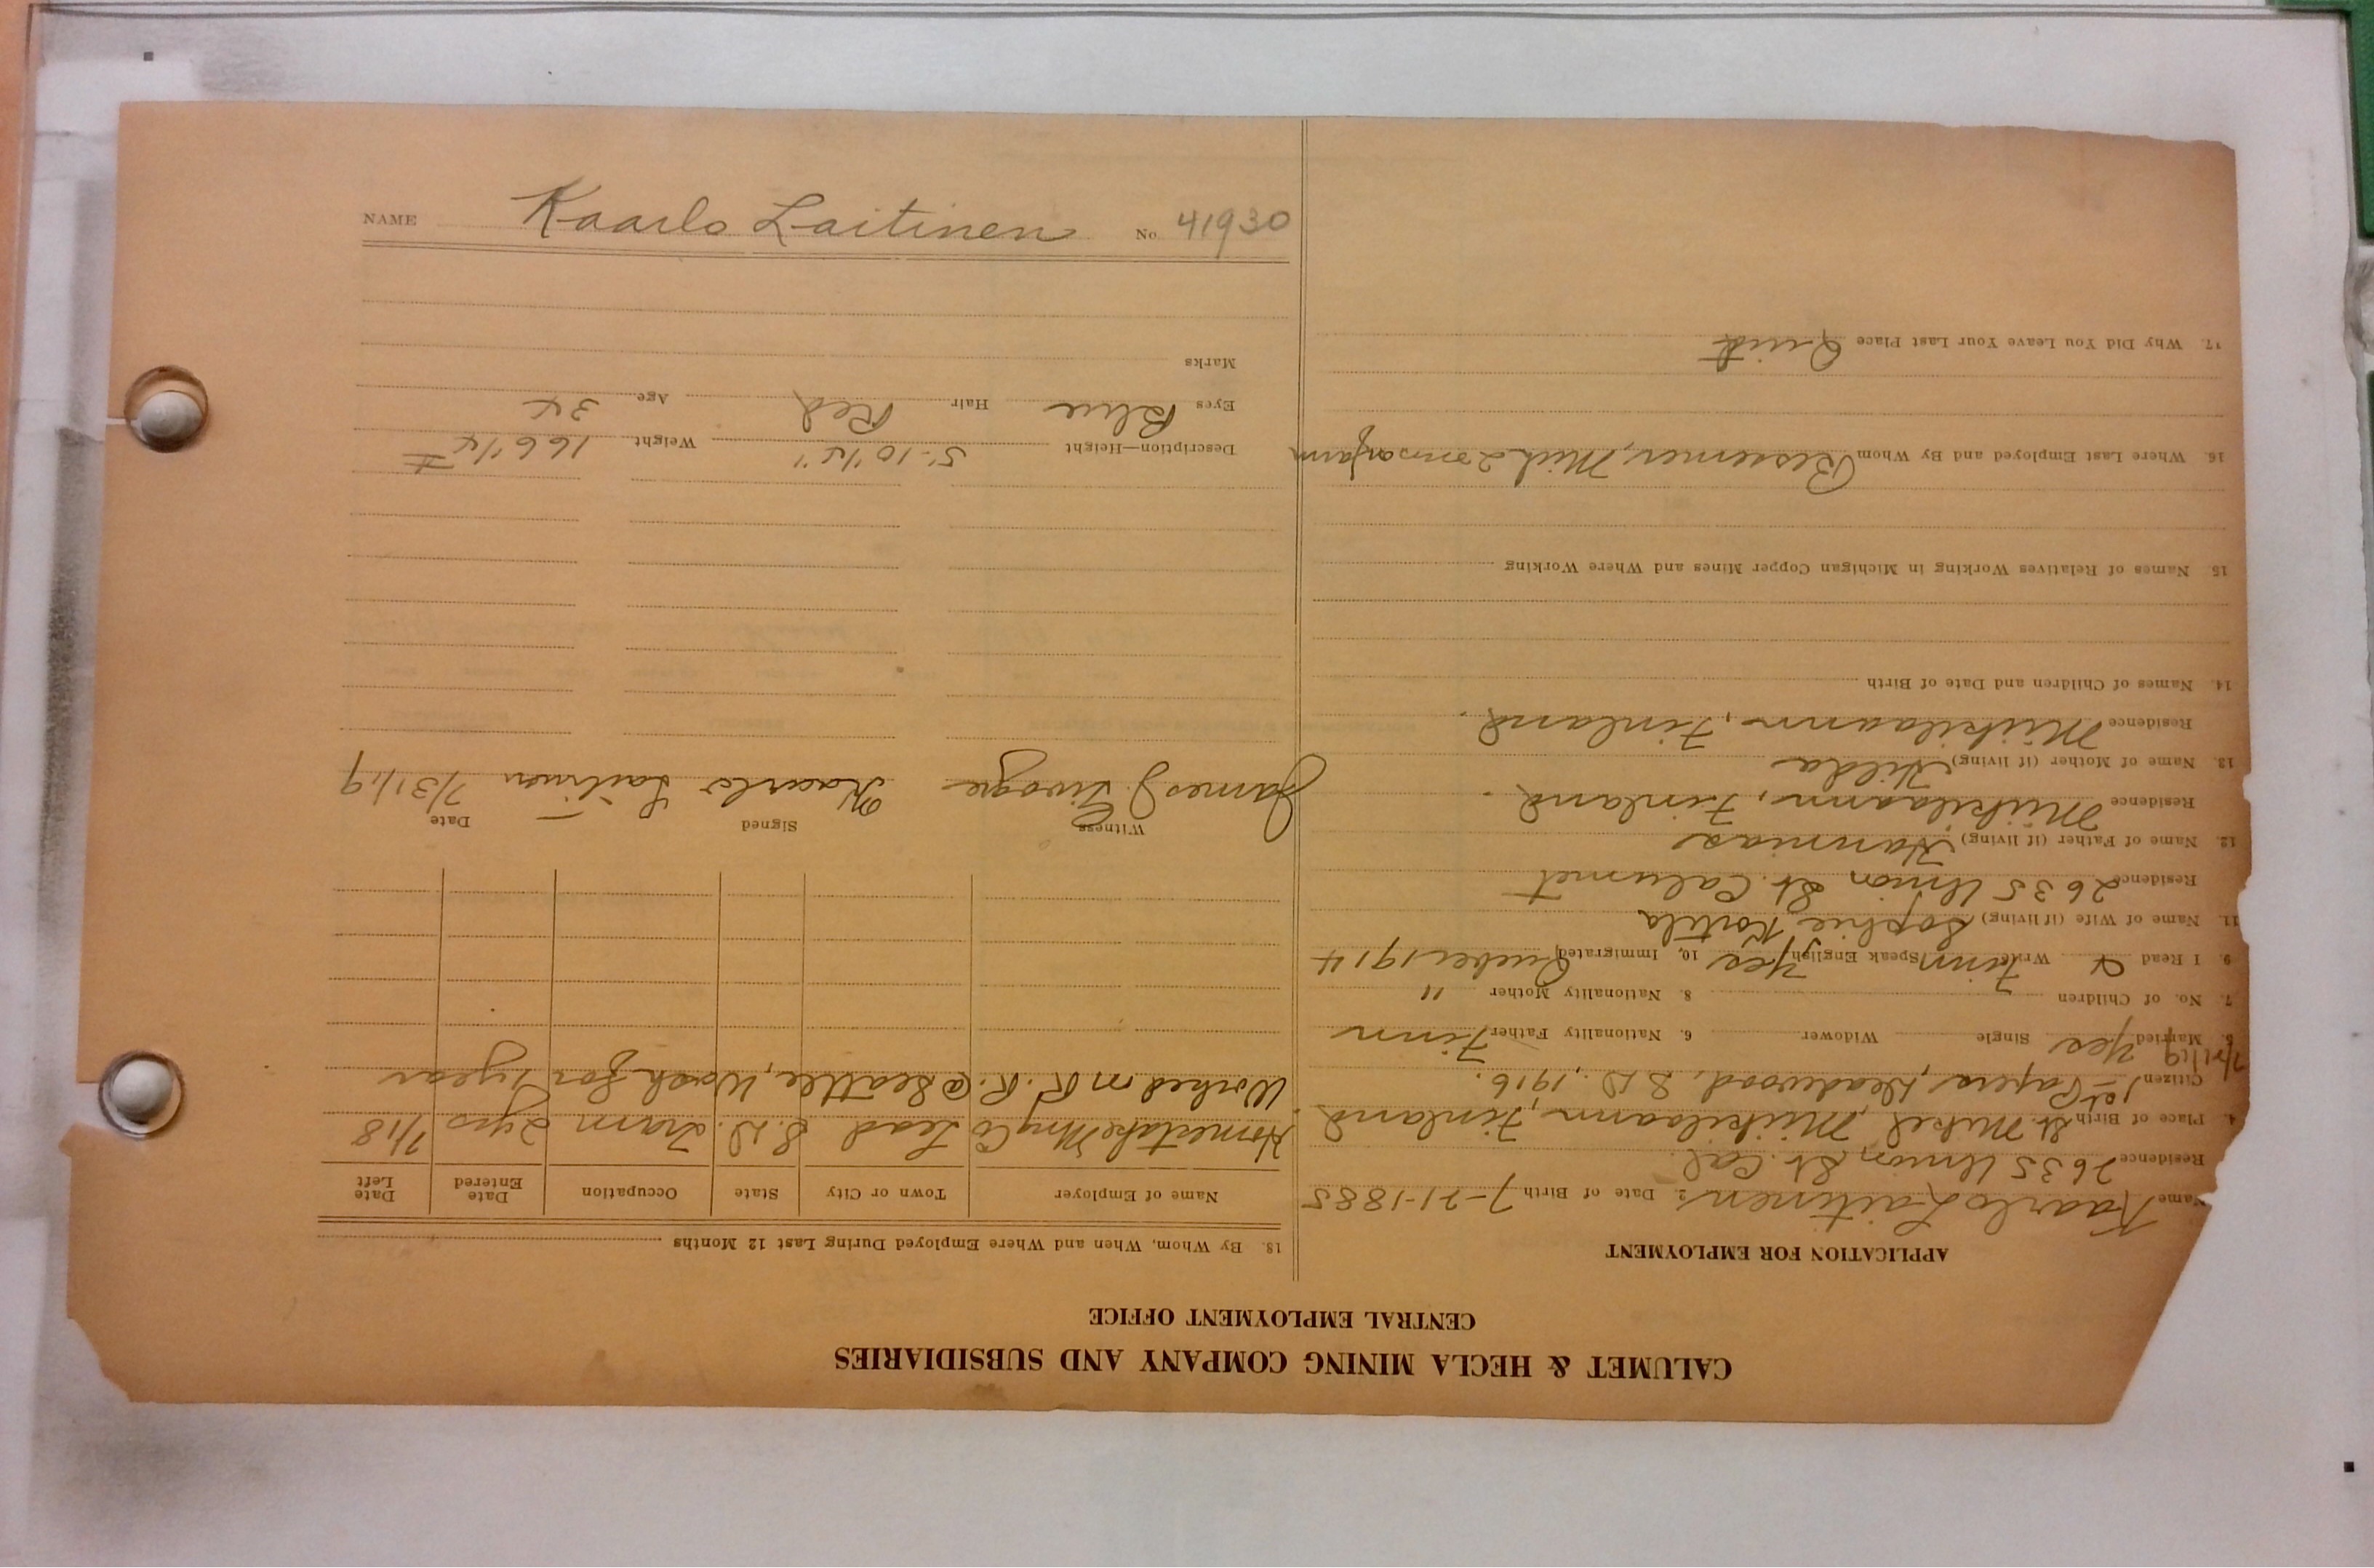 CALUMET & HECLA MINING COMPANY AND SUBSIDIARIES
CENTRAL EMPLOYMENT OFFICE
APPLICATION FOR EMPLOYMENT
Name Kaarlo Laitinen 2. Date of Birth 7-21-1885
Residence 2635 Union St. Cal.
4. Place of Birth St. Mikel, Miikilaann, Finland
Citizen 1st Papers, Deadwood, S.D., 1916.
5. Married Yes Single Widower 6. Nationality Father Finn
7. No. of Children 8. Nationality Mother "
9. I Read & Write Finn Speak English Yes 10. Immigrated Quebec 1914
11. Name of Wife (if living) Sophie Kortila
Residence 2635 Union St. Calumet
12. Name of Father (if living) Hannias
Residence Miikilaann, Finland.
13. Name of Mother (if living) Hilda
Residence Miikilaann, Finland.
14. Names of Children and Date of Birth
15. Names of Relatives Working in Michigan Copper Mines and Where Working
16. Where Last Employed and By Whom Bessemer, Mich 2 ms on farm
17. Why Did You Leave Your Last Place Quit
18. By Whom, When and Where Employed During Last 12 Months
Name of Employer Town or City State Occupation Date Entered Date Left
Homestake Mng Co Lead S.D. Tram 2 yrs 7/18
Worked on R.R. @ Seattle, Wash for 1 year
Witness Signed Date
James J. Kaarlo Laitinen 7/31/19
Description—Height 5'-10 1/2" Weight 166 1/2 #
Eyes Blue Hair Red Age 34
Marks
NAME Kaarlo Laitinen No. 41930